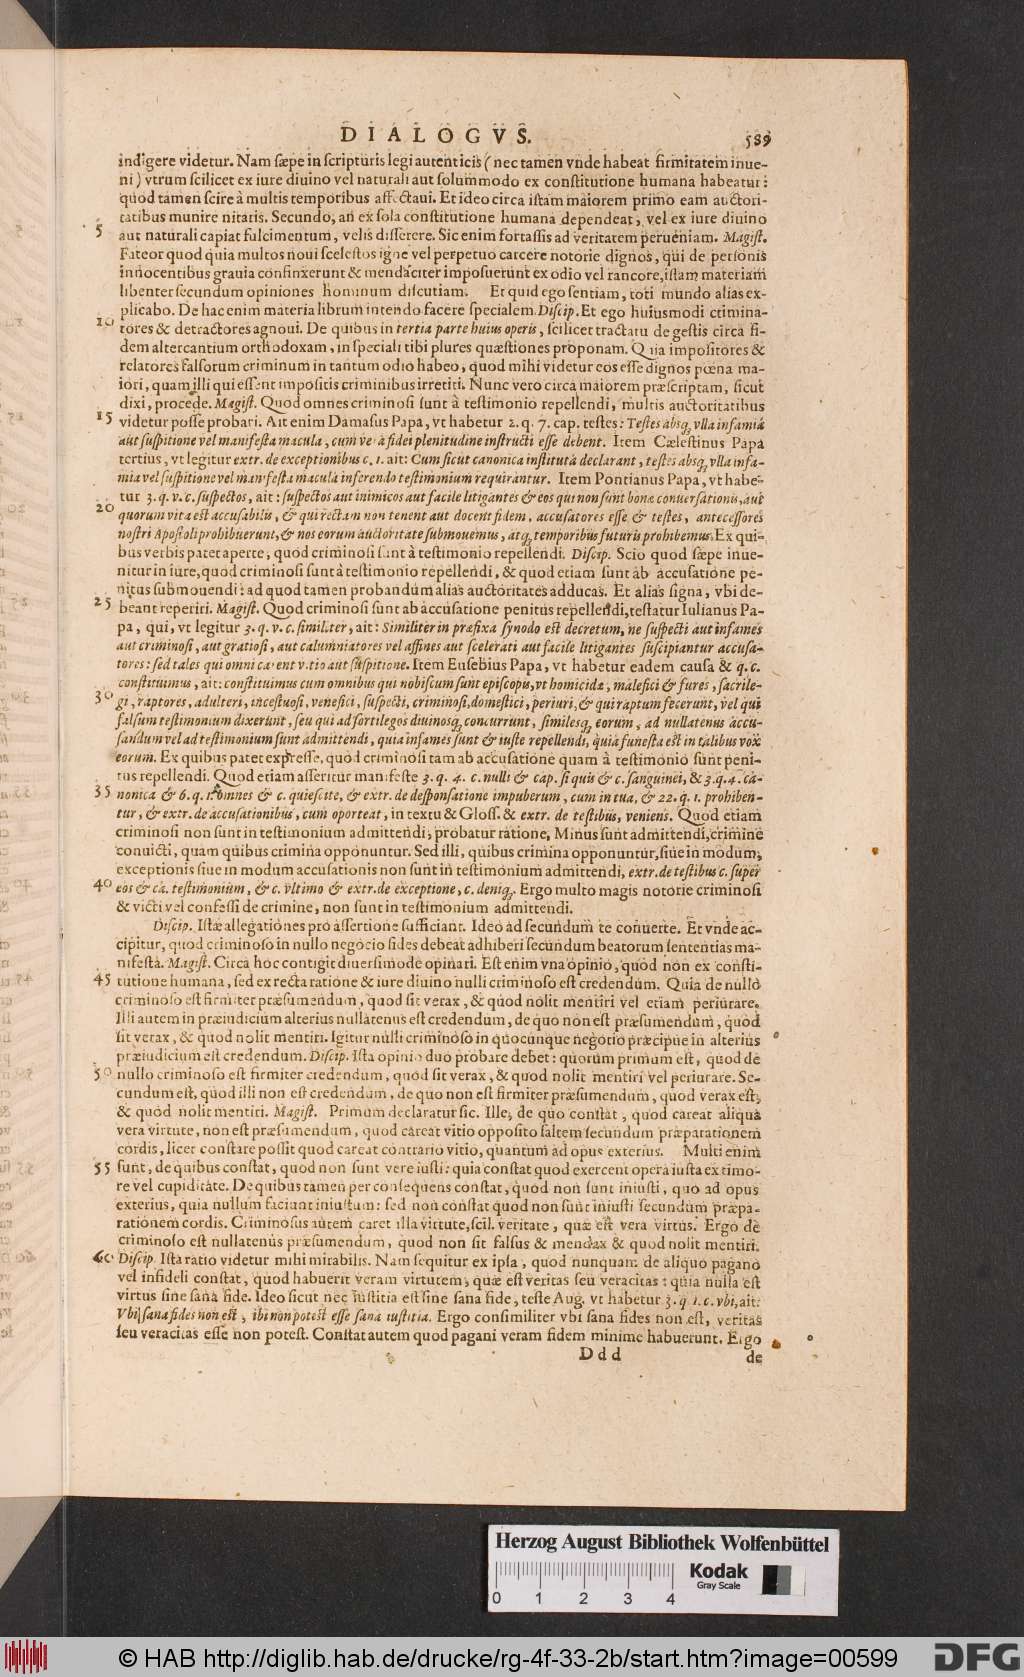 DIALOGVS. 589
indigere videtur. Nam sæpe in scripturis legi autenticis (nec tamen vnde habeat firmitatem inue-
ni) vtrum scilicet ex iure diuino vel naturali aut solummodo ex constitutione humana habeatur:
quod tamen scire à multis temporibus affectaui. Et ideo circa istam maiorem primo eam auctori-
tatibus munire nitaris. Secundo, an ex sola constitutione humana dependeat, vel ex iure diuino
5 aut naturali capiat fulcimentum, velis disserere. Sic enim fortassis ad veritatem perueniam. Magist.
Fateor quod quia multos noui scelestos igne vel perpetuo carcere notorie dignos, qui de personis
innocentibus grauia confinxerunt & mendaciter imposuerunt ex odio vel rancore, istam materiam
libenter secundum opiniones hominum discutiam. Et quid ego sentiam, toti mundo alias ex-
plicabo. De hac enim materia librum intendo facere specialem. Discip. Et ego huiusmodi crimina-
10 tores & detractores agnoui. De quibus in tertia parte huius operis, scilicet tractatu de gestis circa fi-
dem altercantium orthodoxam, in speciali tibi plures quæstiones proponam. Quia impositores &
relatores falsorum criminum in tantum odio habeo, quod mihi videtur eos esse dignos pœna ma-
iori, quam illi qui essent impositis criminibus irretiti. Nunc vero circa maiorem præscriptam, sicut
dixi, procede. Magist. Quod omnes criminosi sunt à testimonio repellendi, multis auctoritatibus
15 videtur posse probari. Ait enim Damasus Papa, vt habetur 2. q. 7. cap. testes: Testes absq; vlla infamia
aut suspitione vel manifesta macula, cum vera fidei plenitudine instructi esse debent. Item Cælestinus Papa
tertius, vt legitur extr. de exceptionibus c. 1. ait: Cum sicut canonica instituta declarant, testes absq; vlla infa-
mia vel suspitione vel manifesta macula inferendo testimonium requirantur. Item Pontianus Papa, vt habe-
tur 3. q. v. c. suspectos, ait: suspectos aut inimicos aut facile litigantes & eos qui non sunt bonæ conuersationis, aut
20 quorum vita est accusabilis, & qui rectam non tenent aut docent fidem, accusatores esse & testes, antecessores
nostri Apostoli prohibuerunt, & nos eorum auctoritate submouemus, atq; temporibus futuris prohibemus. Ex qui-
bus verbis patet aperte, quod criminosi sunt à testimonio repellendi. Discip. Scio quod sæpe inue-
nitur in iure, quod criminosi sunt à testimonio repellendi, & quod etiam sunt ab accusatione pe-
nitus submouendi: ad quod tamen probandum alias auctoritates adducas. Et alias signa, vbi de-
25 beant reperiri. Magist. Quod criminosi sunt ab accusatione penitus repellendi, testatur Iulianus Pa-
pa, qui, vt legitur 3. q. v. c. similiter, ait: Similiter in præfixa synodo est decretum, ne suspecti aut infames
aut criminosi, aut gratiosi, aut calumniatores vel affines aut scelerati aut facile litigantes suscipiantur accusa-
tores: sed tales qui omni carent vitio aut suspitione. Item Eusebius Papa, vt habetur eadem causa & q. c.
constituimus, ait: constituimus cum omnibus qui nobiscum sunt episcopis, vt homicidæ, malefici & fures, sacrile-
30 gi, raptores, adulteri, incestuosi, venefici, suspecti, criminosi, domestici, periuri, & qui raptum fecerunt, vel qui
falsum testimonium dixerunt, seu qui ad sortilegos diuinosq; concurrunt, similesq; eorum, ad nullatenus accu-
sandum vel ad testimonium sunt admittendi, quia infames sunt & iuste repellendi, quia funesta est in talibus vox
eorum. Ex quibus patet expresse, quod criminosi tam ab accusatione quam à testimonio sunt peni-
tus repellendi. Quod etiam asseritur manifeste 3. q. 4. c. nulli & cap. si quis & c. sanguinei, & 3. q. 4. ca-
35 nonica & 6. q. 1. omnes & c. quiescite, & extr. de desponsatione impuberum, cum in tua, & 22. q. 1. prohiben-
tur, & extr. de accusationibus, cum oporteat, in textu & Gloss. & extr. de testibus, veniens. Quod etiam
criminosi non sunt in testimonium admittendi, probatur ratione, Minus sunt admittendi, crimine
conuicti, quam quibus crimina opponuntur. Sed illi, quibus crimina opponuntur, siue in modum,
exceptionis siue in modum accusationis non sunt in testimonium admittendi, extr. de testibus c. super
40 eos & ca. testimonium, & c. vltimo & extr. de exceptione, c. deniq;. Ergo multo magis notorie criminosi
& victi vel confessi de crimine, non sunt in testimonium admittendi.
Discip. Istæ allegationes pro assertione sufficiant. Ideo ad secundum te conuerte. Et vnde ac-
cipitur, quod criminoso in nullo negocio fides debeat adhiberi secundum beatorum sententias ma-
nifesta. Magist. Circa hoc contigit diuersimode opinari. Est enim vna opinio, quod non ex consti-
45 tutione humana, sed ex recta ratione & iure diuino nulli criminoso est credendum. Quia de nullo
criminoso est firmiter præsumendum, quod sit verax, & quod nolit mentiri vel etiam periurare.
Illi autem in præiudicium alterius nullatenus est credendum, de quo non est præsumendum, quod
sit verax, & quod nolit mentiri. Igitur nulli criminoso in quocunque negotio præcipue in alterius
præiudicium est credendum. Discip. Ista opinio duo probare debet: quorum primum est, quod de
50 nullo criminoso est firmiter credendum, quod sit verax, & quod nolit mentiri vel periurare. Se-
cundum est, quod illi non est credendum, de quo non est firmiter præsumendum, quod verax est,
& quod nolit mentiri. Magist. Primum declaratur sic. Ille, de quo constat, quod careat aliqua
vera virtute, non est præsumendum, quod careat vitio opposito saltem secundum præparationem
cordis, licet constare possit quod careat contrario vitio, quantum ad opus exterius. Multi enim
55 sunt, de quibus constat, quod non sunt vere iusti: quia constat quod exercent opera iusta ex timo-
re vel cupiditate. De quibus tamen per consequens constat, quod non sunt iniusti, quo ad opus
exterius, quia nullum faciunt iniustum: sed non constat quod non sunt iniusti secundum præpa-
rationem cordis. Criminosus autem caret illa virtute, scil. veritate, quæ est vera virtus. Ergo de
criminoso est nullatenus præsumendum, quod non sit falsus & mendax & quod nolit mentiri.
60 Discip. Ista ratio videtur mihi mirabilis. Nam sequitur ex ipsa, quod nunquam de aliquo pagano
vel infideli constat, quod habuerit veram virtutem, quæ est veritas seu veracitas: quia nulla est
virtus sine sana fide. Ideo sicut nec iustitia est sine sana fide, teste Aug. vt habetur 3. q. 1. c. vbi, ait:
Vbi sana fides non est, ibi non potest esse sana iustitia. Ergo consimiliter vbi sana fides non est, veritas
seu veracitas esse non potest. Constat autem quod pagani veram fidem minime habuerunt. Ergo
Ddd de
Herzog August Bibliothek Wolfenbüttel
0 1 2 3 4
Kodak
Gray Scale
© HAB http://diglib.hab.de/drucke/rg-4f-33-2b/start.htm?image=00599
DFG